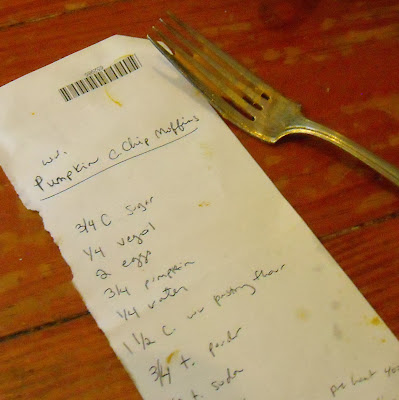 w.
Pumpkin C. Chip Muffins
3/4 C sugar
1/4
2 eggs
3/4 pumpkin
1/4 water
1 1/2 C. pastry flour
3/4 t. powder
t. soda
pre heat 400